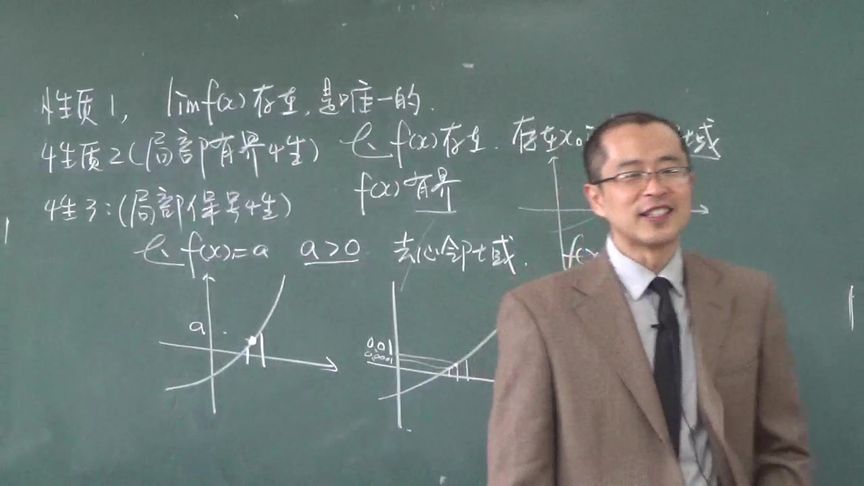 性质1, limf(x)存在,是唯一的.
性质2(局部有界性) f(x)存在. 存在x₀ 域
f(x)有界
性3:(局部保号性)
f(x)=a a>0 去心邻域. f(x
a
0.01
0.0001